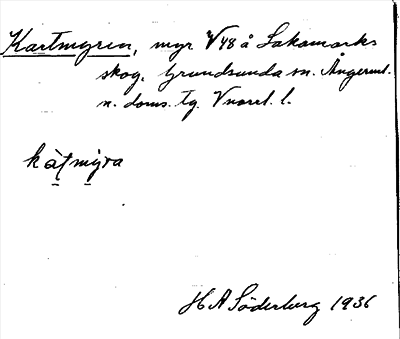 Kartmyren, myr V48 å Sakamarks
skog, Grundsunda sn. Ångerml.
n. doms. tg. Vnorrl. l.
kàtmýra
H A Söderberg 1936